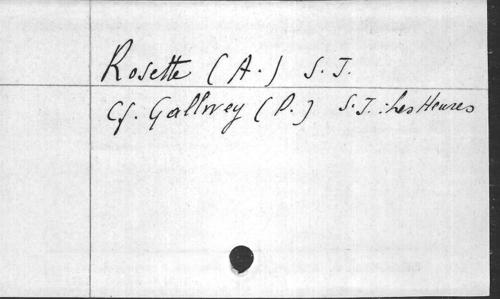 Rosette (A.) S.J.
Cf. Gallwey (P.) S.J.: Les Heures